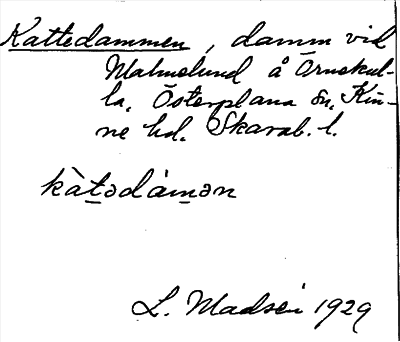 Kattedammen, damm vid
Malmelund å Arnekul-
la, Österplana sn, Kin-
ne hd. Skarab. l.
kàt̲ədàm̲ən
L. Madsén 1929